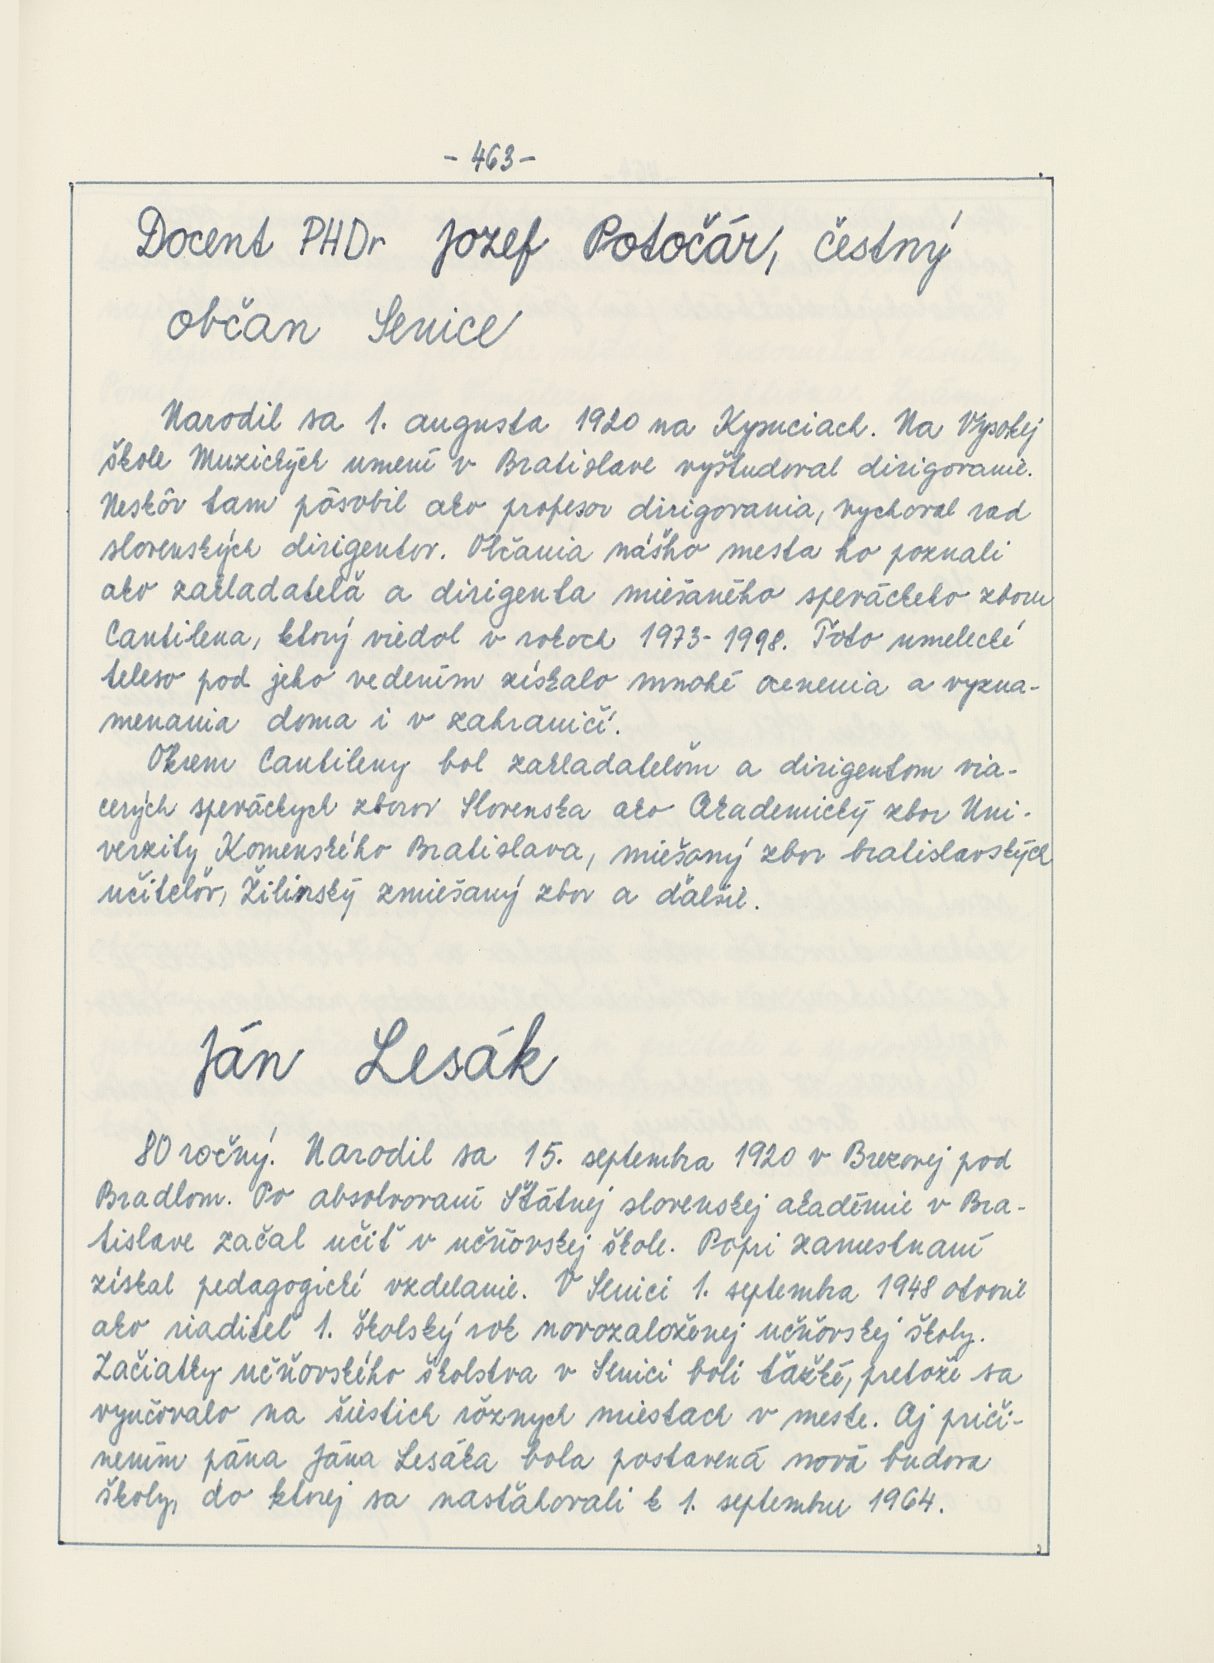 - 463 -
Docent PHDr Jozef Potočár, čestný
občan Senice
Narodil sa 1. augusta 1920 na Kysuciach. Na Vysokej
škole Muzických umení v Bratislave vyštudoval dirigovanie.
Neskôr tam pôsobil ako profesor dirigovania, vychoval rad
slovenských dirigentov. Občania nášho mesta ho poznali
ako zakladateľa a dirigenta miešaného speváckeho zboru
Cantilena, ktorý viedol v rokoch 1973-1998. Toto umelecké
teleso pod jeho vedením získalo mnohé ocenenia a vyzna-
menania doma i v zahraničí.
Okrem Cantileny bol zakladateľom a dirigentom via-
cerých speváckych zborov Slovenska ako Akademický zbor Uni-
verzity Komenského Bratislava, miešaný zbor bratislavských
učiteľov, Žilinský zmiešaný zbor a ďalšie.
Ján Lesák
80 ročný. Narodil sa 15. septembra 1920 v Brezovej pod
Bradlom. Po absolvovaní Štátnej slovenskej akadémie v Bra-
tislave začal učiť v učňovskej škole. Popri zamestnaní
získal pedagogické vzdelanie. V Senici 1. septembra 1948 otvoril
ako riaditeľ 1. školský rok novozaloženej učňovskej školy.
Začiatky učňovského školstva v Senici boli ťažké, pretože sa
vyučovalo na šiestich rôznych miestach v meste. Aj priči-
nením pána Jána Lesáka bola postavená nová budova
školy, do ktorej sa nasťahovali k 1. septembru 1964.